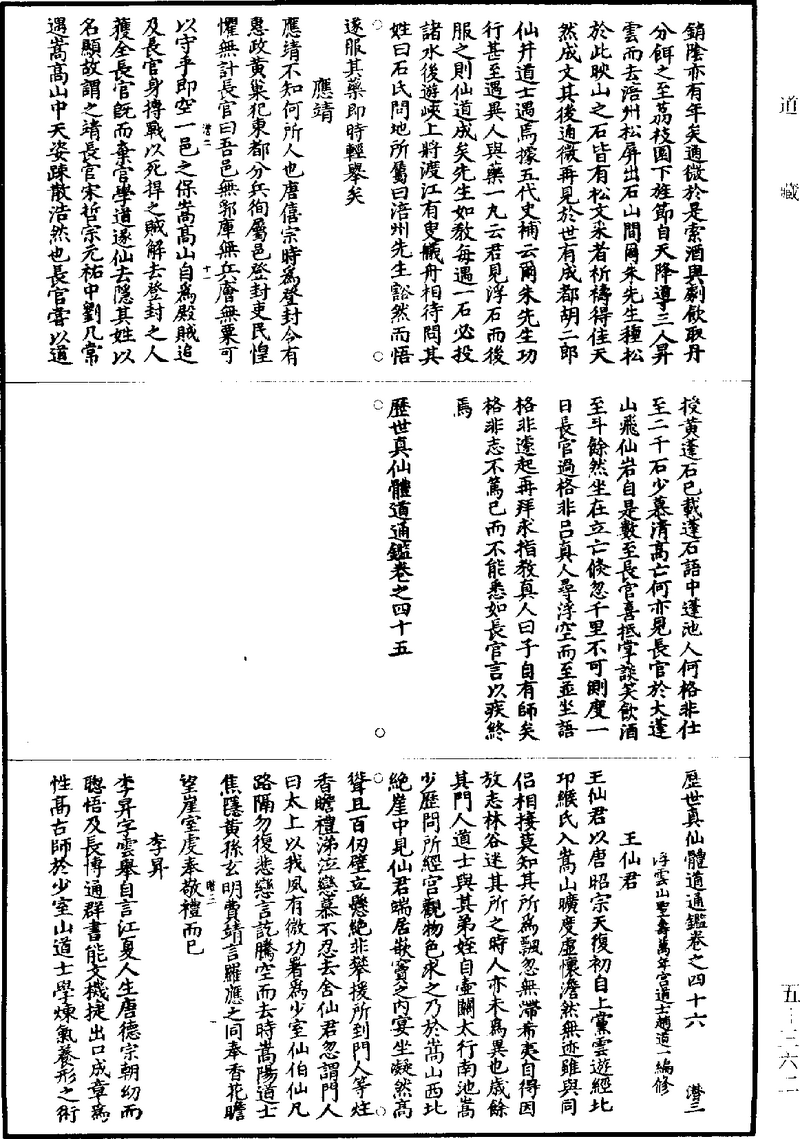 道藏
五—三六二
銷陰亦有年矣通微於是索酒與劇飲取丹
分餌之至荔枝園下旌節自天降導三人昇
雲而去涪州松屏出石山間爾朱先生種松
於此映山之石皆有松文采者祈禱得佳天
然成文其後通微再見於世有成都胡二郎
仙井道士遇焉據五代史補云爾朱先生功
行甚至遇異人與藥一丸云君見浮石而後
服之則仙道成矣先生如教每遇一石必投
諸水後遊峽上將渡江有叟艤舟相待問其
姓曰石氏問地所屬曰涪州先生豁然而悟
遂服其藥即時輕舉矣
應靖
應靖不知何所人也唐僖宗時為登封令有
惠政黃巢犯東都分兵徇屬邑登封吏民惶
懼無計長官曰吾邑無郛庫無兵廥無粟可
以守乎即空一邑之保嵩高山自為殿賊追
潛二
十一
及長官身搏戰以死得之賊解去登封之人
獲全長官旣而棄官學道遂仙去隱其姓以
名顯故謂之靖長官宋哲宗元祐中劉几常
遇嵩高山中天姿踈散浩然也長官嘗以道
授黃蓬石已載蓬石語中蓬池人何格非仕
至二千石少慕清高亡何亦見長官於大蓬
山飛仙岩自是數至長官喜抵掌談笑飲酒
至斗餘然坐在立亡倏忽千里不可測度一
日長官過格非呂真人尋浮空而至並坐語
格非遽起再拜求指教真人曰子自有師矣
格非志不篤已而不能悉如長官言以疾終
焉
歷世真仙體道通鑑卷之四十五
歷世真仙體道通鑑卷之四十六
潛三
浮雲山聖壽萬年宮道士趙道一編修
王仙君
王仙君以唐昭宗天復初自上黨雲遊經北
邙緱氏入嵩山曠度虛懷澹然無迹雖與同
侶相接莫知其所為飄忽無滯希夷自得因
放志林谷迷其所之時人亦未為異也歲餘
其門人道士與其弟姪自壺關太行南池嵩
少歷問所經宮觀物色求之乃於嵩山西北
絕崖中見仙君端居嵌竇之內宴坐凝然高
聳且百仞壁立懸絕非攀援所到門人等炷
香瞻禮涕泣戀慕不忍去舍仙君忽謂門人
曰太上以我夙有微功署為少室仙伯仙凡
路隔勿復悲戀言訖騰空而去時嵩陽道士
焦隱黃孫玄明費靖言羅應之同奉香花瞻
望崖室虔奉敬禮而已
李昇
李昇字雲舉自言江夏人生唐德宗朝幼而
聰悟及長博通群書能文機捷出口成章為
性高古師於少室山道士學煉氣養形之術